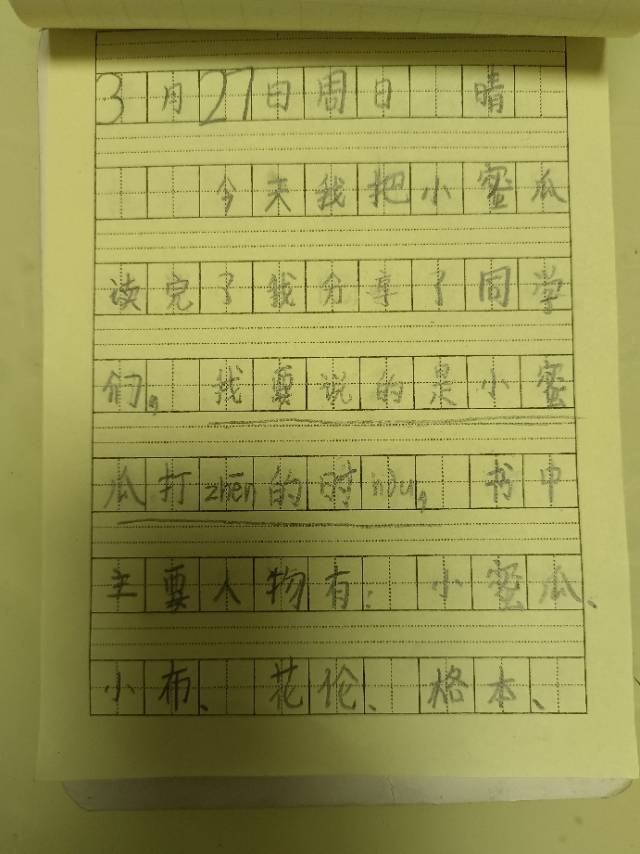 3月27日周日 晴
今天我把小蜜瓜
读完了我分享了同学
们, 我要说的是小蜜
瓜打zhēn的时hou, 书中
主要人物有: 小蜜瓜、
小布、花伦、格本、